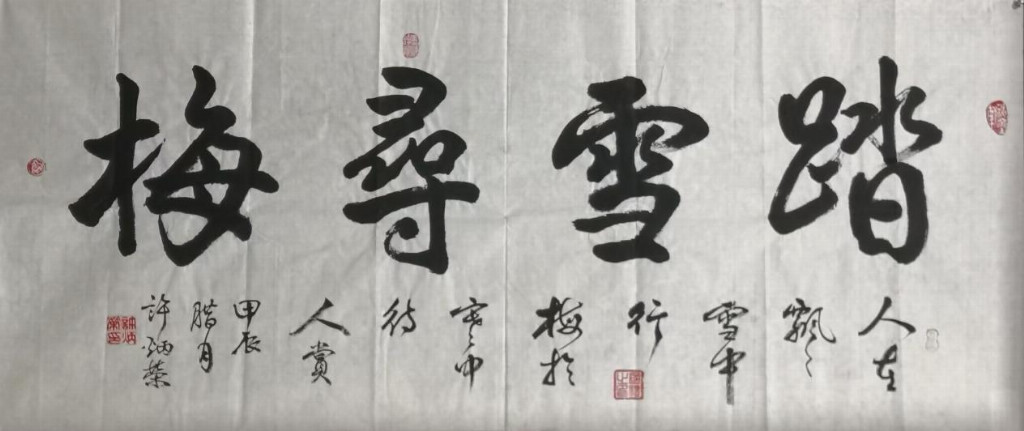 踏雪尋梅
人在
飄〻
雪中
行
梅於
寒〻中
待
人賞
甲辰
腊月
許炳榮